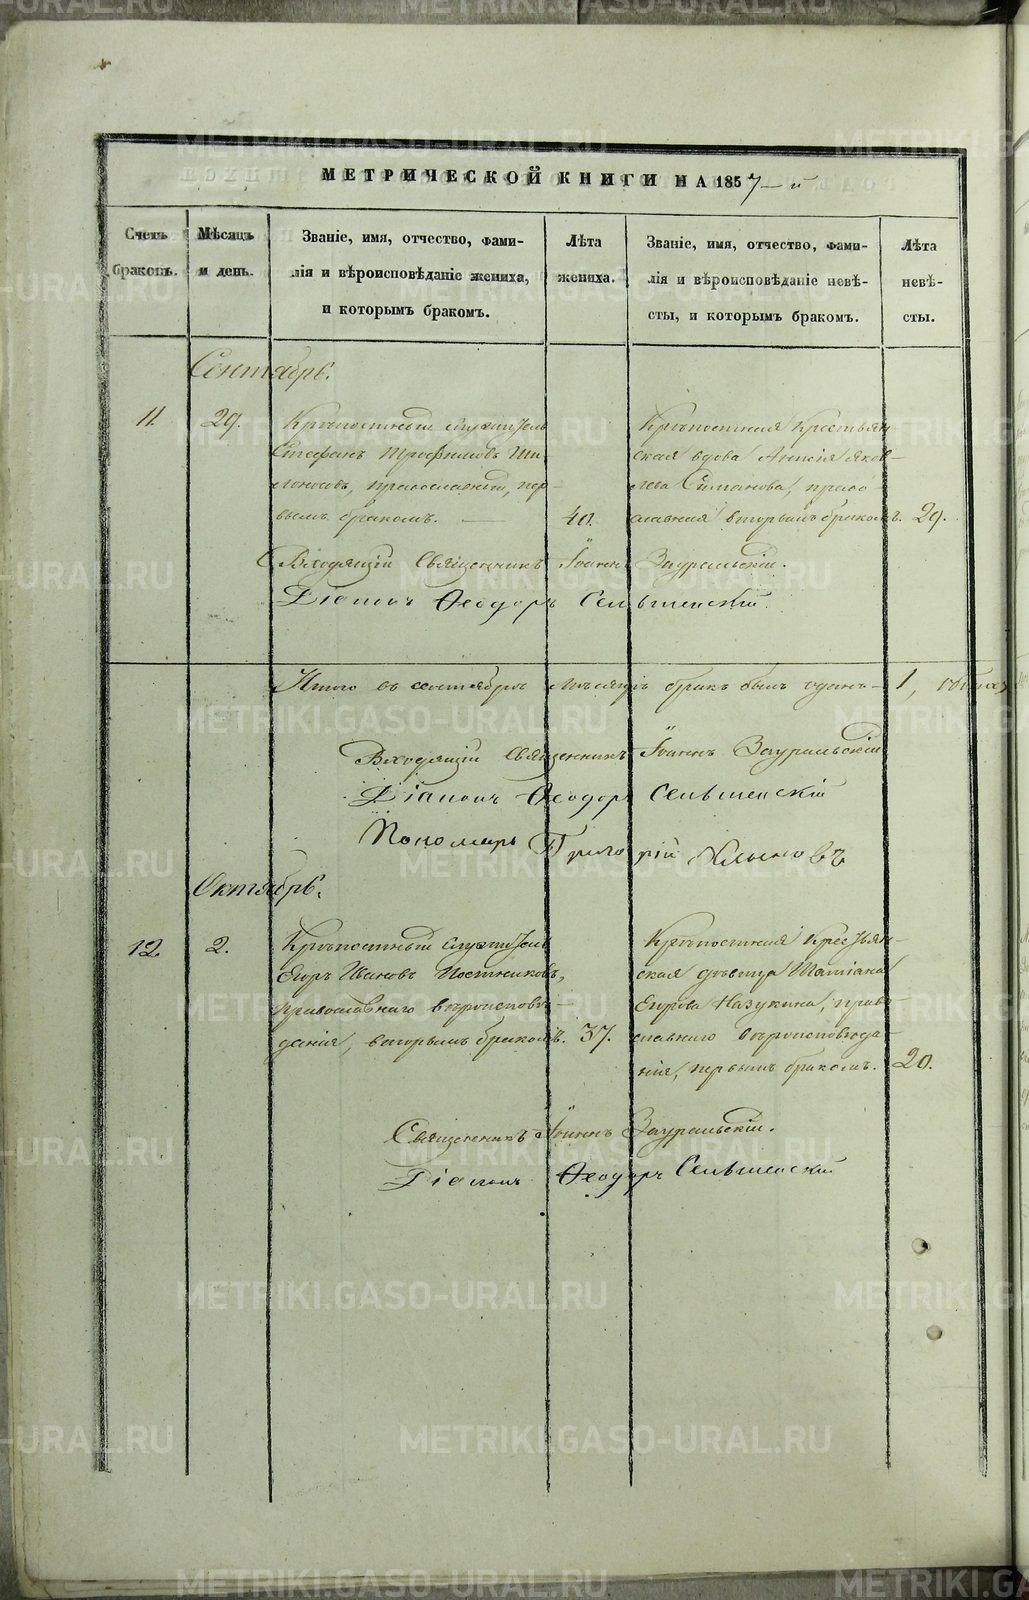 МЕТРИЧЕСКОЙ КНИГИ НА 1857-й
Счетъ браковъ.
Мѣсяцъ и день.
Званіе, имя, отчество, фами-
лія и вѣроисповѣданіе жениха,
и которымъ бракомъ.
Лѣта жениха.
Званіе, имя, отчество, фами-
лія и вѣроисповѣданіе невѣ-
сты, и которымъ бракомъ.
Лѣта невѣ-
сты.
Сентябрь.
11. 29.
Крѣпостный служитель
Стефанъ Трофимовъ Ши-
лоносовъ, православный, пер-
вымъ бракомъ. —
40.
Крѣпостная Крестьян-
ская вдова Анисія Яков-
лева Симанова, право-
славная вторымъ бракомъ.
29.
Входящій Священникъ Іоаннъ Зауральскій.
Діаконъ Ѳеодоръ Сельменскій.
Итого въ сентябрѣ мѣсяцѣ бракъ былъ одинъ — 1,
Входящій Священникъ Іоаннъ Зауральскій
Діаконъ Ѳеодоръ Сельменскій
Пономарь Григорій
Октябрь.
12. 2.
Крѣпостный служитель
Егоръ Ивановъ Постниковъ,
православнаго вѣроисповѣ-
данія, вторымъ бракомъ.
37.
Крѣпостная Крестьян-
ская дѣвица Татіана
Егорова Назукина, право-
славнаго вѣроисповѣда-
нія, первымъ бракомъ.
20.
Священникъ Іоаннъ Зауральскій.
Діаконъ Ѳеодоръ Сельменскій
METRIKI.GASO-URAL.RU